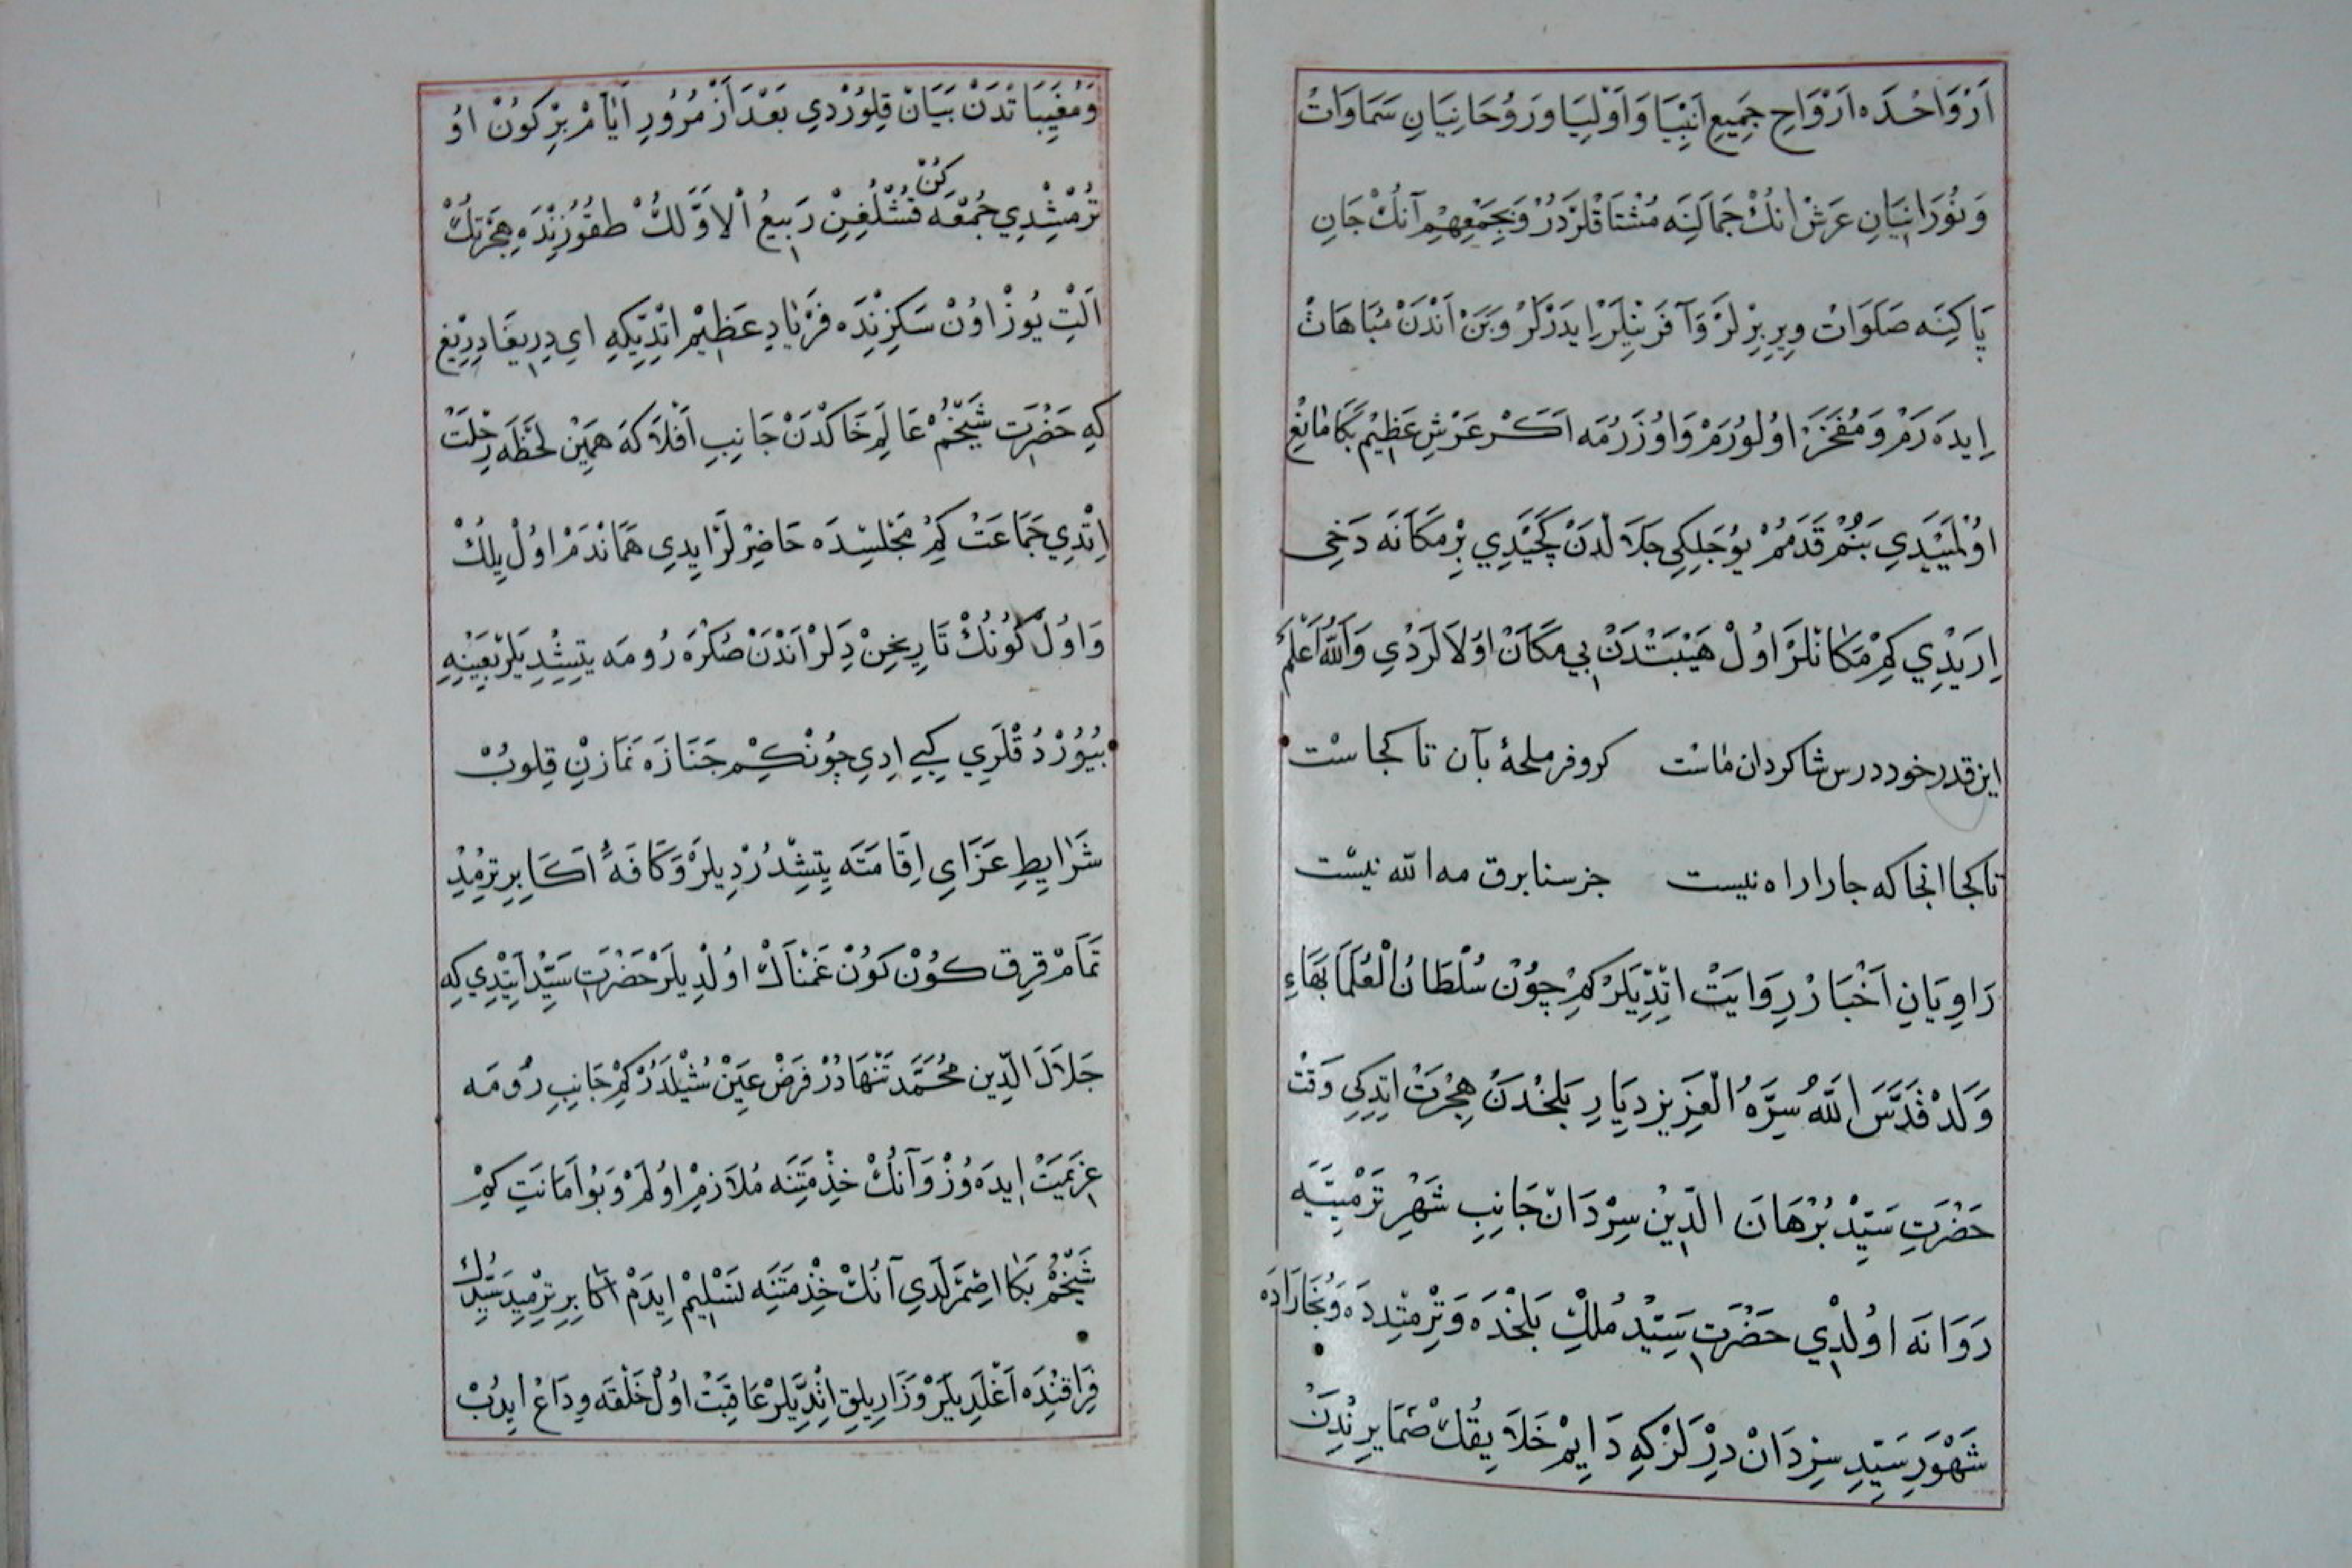 اَرْوَاحْدَه اَرْوَاحِ جَمِيعِ اَنْبِيَا وَاَوْلِيَا وَرَوُحَانِيَانِ سَمَاوَاتْ
وَنُورَانِيَانِ عَرَشْ اَنُكْ جَمَالَنِه مُشْتَاقْلَرْدَرْ وَبِجَمْعِهِمْ آنُكْ جَانِ
پَاكِنَه صَلَوَاتْ وِيرِرْلَرْ وَآفَرِنْلَرْ اِيدَرْلَرْ وَبَنْ اَنْدَنْ مُبَاهَاتْ
اِيدَه رَمْ وَمُفْخَرْ اوُلوُرُمْ وَاوُزَرُمَه اَكَرْ عَرْشِ عَظِيمْ بَكَا مَانِعْ
اوُلْمَيَيْدِي بَنُمْ قَدَمُمْ يوُجَلِكِي جَلَالْدَنْ كَچَيْدِي بِرْ مَكَانَه دَخِي
اِرَيْدِي كِمْ مَكَانْلَرْ اوُلْ هَيْبَتْدَنْ بِي مَكَانْ اوُلَالَرْدِي وَاَللّٰهُ اَعْلَمْ
اين قدر خود درس شاكردان ماست كروفر ملحمۀ بآن تا كجاست
تا كجا انجا كه جا را راه نيست جز سنا برق مه الله نيست
رَاوِيَانِ اَخْبَارْ رِوَايَتْ اِتْدِيلَرْ كِمْ چوُنْ سُلْطَانُ الْعُلَمَا بَهَاءِ
وَلَدْ قَدَّسَ اللّٰهُ سِرَّهُ الْعَزِيزْ دِيَارِ بَلْخْدَنْ هِجْرَتْ اِتْدِكِي وَقْتْ
حَضْرَتِ سَيِّدْ بُرْهَانَ الدِّينْ سِرْدَانْ جَانِبِ شَهْرِ تَرْمِيَه
رَوَانَه اوُلْدِي حَضْرَتِ سَيِّدْ مُلْكِ بَلْخْدَه وَتِرْمِتِدِدَه وَبُخَارَادَه
شَهْوَرِ سَيِّدِ سِرْدَانْ دِرْلَرْ كِه دَايِمْ خَلَايِقُكْ ضَمَايِرِنْدَنْ
وَمُغَيِّبَاتْدَنْ بَيَانْ قِلوُرْدِي بَعْدَ اَزْ مُرُورِ اَيَّامْ بِرْ كوُنْ اوُ
تُرْمِشْدِي جُمْعَه كُنْ قُشْلُغِنْ رَبِيعُ الْاَوَّلُكْ طقُوزِنْدَه هِجْرَتِكْ
اَلْتِ يُوزْ اوُنْ سَكِزِنْدَه فَرْيَادِ عَظِيمْ اِتْدِيكِه اي دِرِيغَا دِرِيغْ
كِه حَضْرَتِ شَيْخُمْ عَالَمِ خَاكْدَنْ جَانِبِ اَفْلَاكَه هَمِينْ لَحْظَه رِحْلَتْ
اِتْدِي جَمَاعَتْ كِمْ مَجْلِسِدَه حَاضِرْلَرْ اِيدِي هَمَانْدَمْ اوُلْ يِلُكْ
وَاوُلْ كوُنُكْ تَارِيخِنْ دِلَرْ اَنْدَنْ صُكْرَه رُومَه يِتِشْدِيلَرْ بِعَيْنِه
بُيُورْدُقْلَرِي كِبِي اِدِي چوُنْكِمْ جَنَازَه نَمَازِنْ قِلوُبْ
شَرَايِطِ عَزَاي اِقَامَتَه يِتِشْدُرْدِيلَرْ وَكَافَۀُ اَكَابِرِ تِرْمِدْ
تَمَامْ قِرِق كوُنْ كوُنْ غَمْنَاكْ اوُلْدِيلَرْ حَضْرَتِ سَيِّدْ اَيْتْدِي كِه
جَلَالَ الدِّين مُحَمَّد تَنْهَادُرْ فَرْضِ عَيِنْ شُيْلَدُرْ كِمْ جَانِبِ رُومَه
عَزِيمَتْ اِيدَه وُزْ وَآنُكْ خِذْمَتِنَه مُلَازِمْ اوُلَمْ وَبُو اَمَانَتِ كِمْ
شَيْخُمْ بَكَا اِصْمَرْلَدِي آنُكْ خِذْمَتِنَه تَسْلِيمْ اِيدَمْ اَكَابِرِ تِرْمِيدِ سَيِّدُكْ
فِرَاقِنْدَه اَغْلَدِيلَرْ وَزَارِيلِق اِتْدِيلَرْ عَاقِبَتْ اوُلْ خَلْقَه وِدَاعْ اِيدُبْ